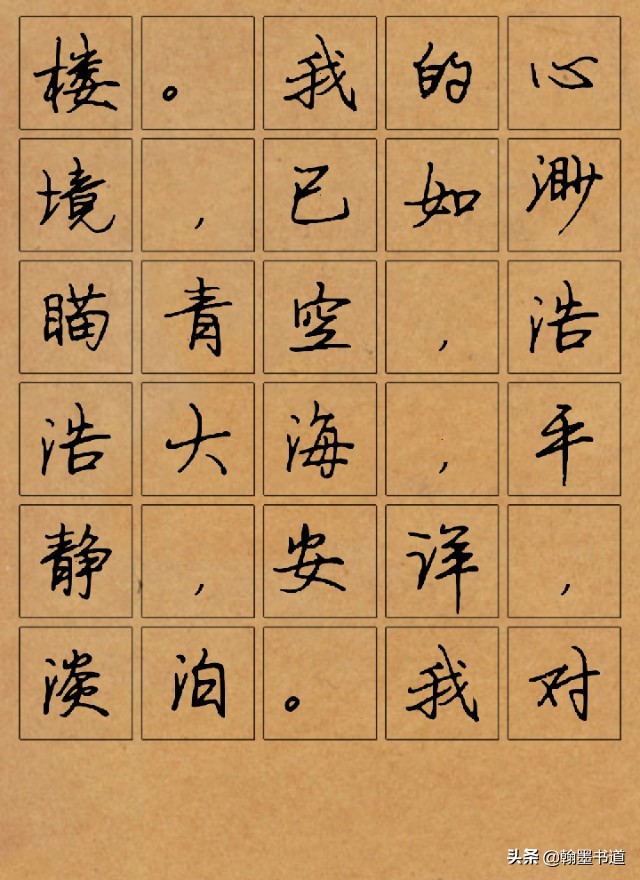 楼。我的心
境，已如渺
瞄青空，浩
浩大海，平
静，安详，
淡泊。我对
头条 @翰墨书道